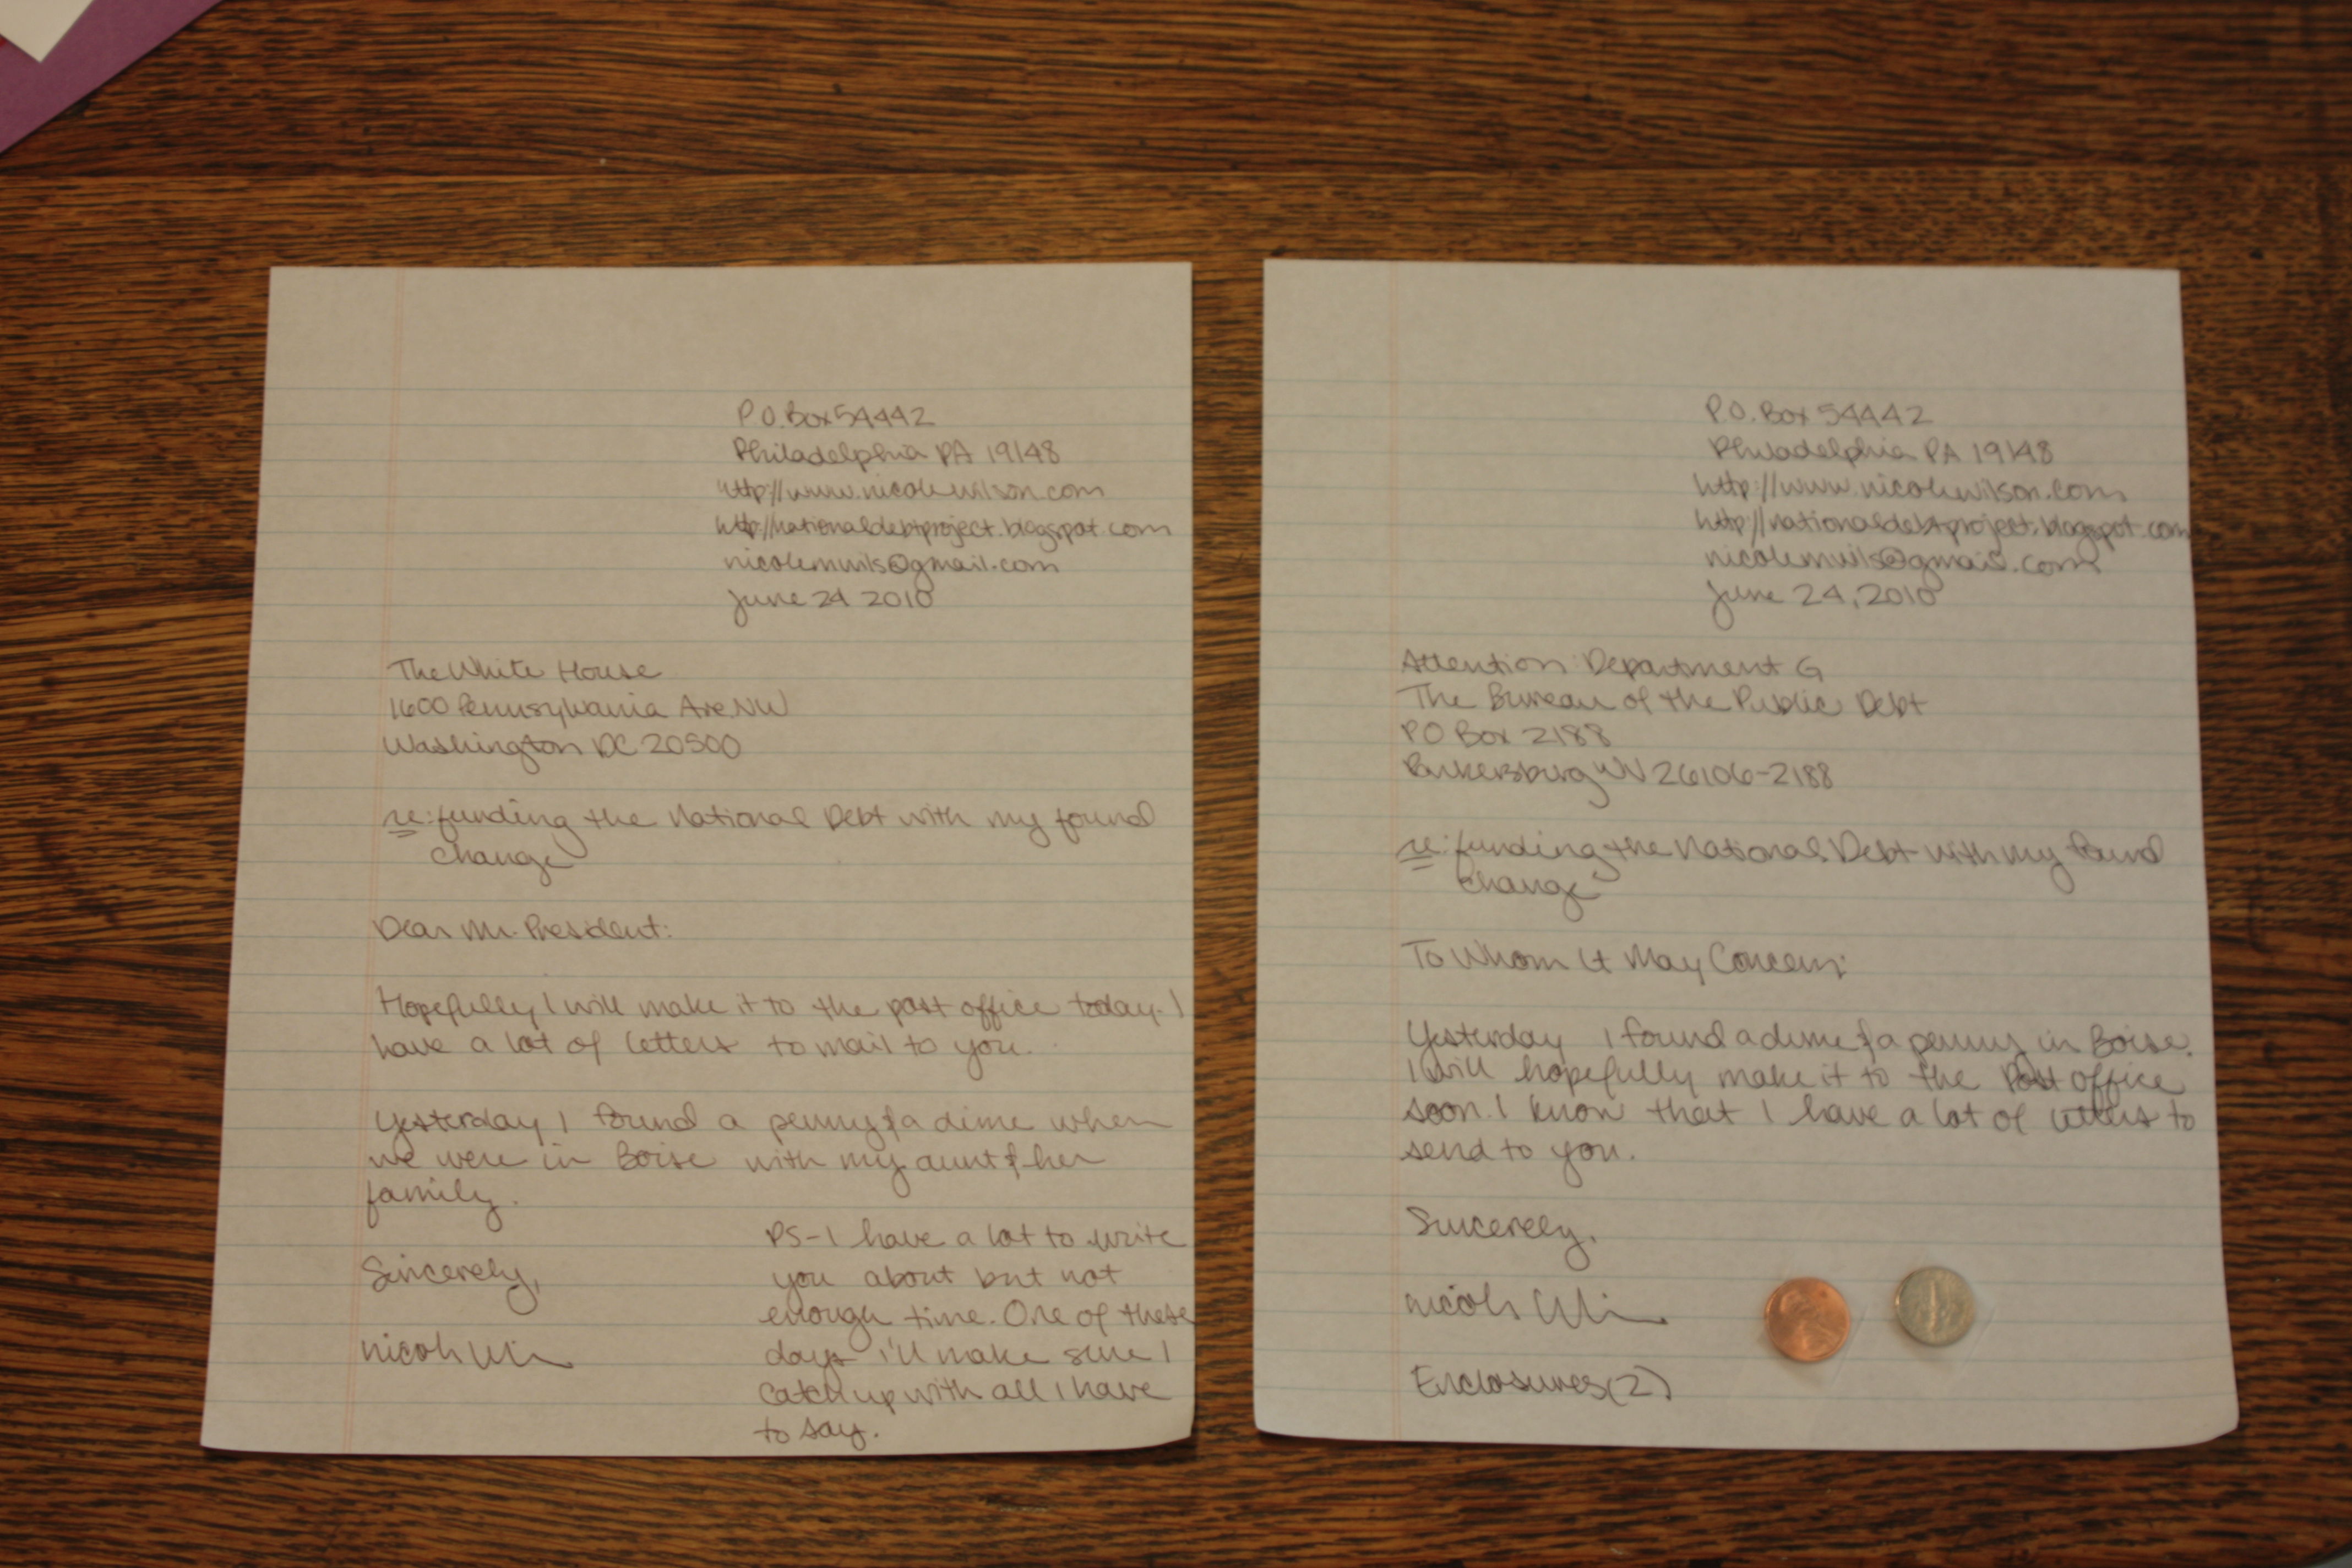 P.O. Box 54442
Philadelphia PA 19148
http://www.nicolewilson.com
http://nationaldebtproject.blogspot.com
nicolemwils@gmail.com
June 24 2010
The White House
1600 Pennsylvania Ave. NW
Washington DC 20500
re: funding the National Debt with my found
change
Dear Mr. President:
Hopefully I will make it to the post office today. I
have a lot of letters to mail to you.
Yesterday I found a penny & a dime when
we were in Boise with my aunt & her
family.
Sincerely,
nicole Wi
PS-I have a lot to write
you about but not
enough time. One of these
days i'll make sure I
catch up with all I have
to say.
P.O. Box 54442
Philadelphia PA 19148
http://www.nicolewilson.com
http://nationaldebtproject.blogspot.com
nicolemwils@gmail.com
June 24, 2010
Attention Department G
The Bureau of the Public Debt
PO Box 2188
Parkersburg WV 26106-2188
re: funding the National Debt with my found
change
To Whom It May Concern:
Yesterday I found a dime & a penny in Boise.
I will hopefully make it to the Post office
soon. I know that I have a lot of letters to
send to you.
Sincerely,
nicole Wi
Enclosures(2)